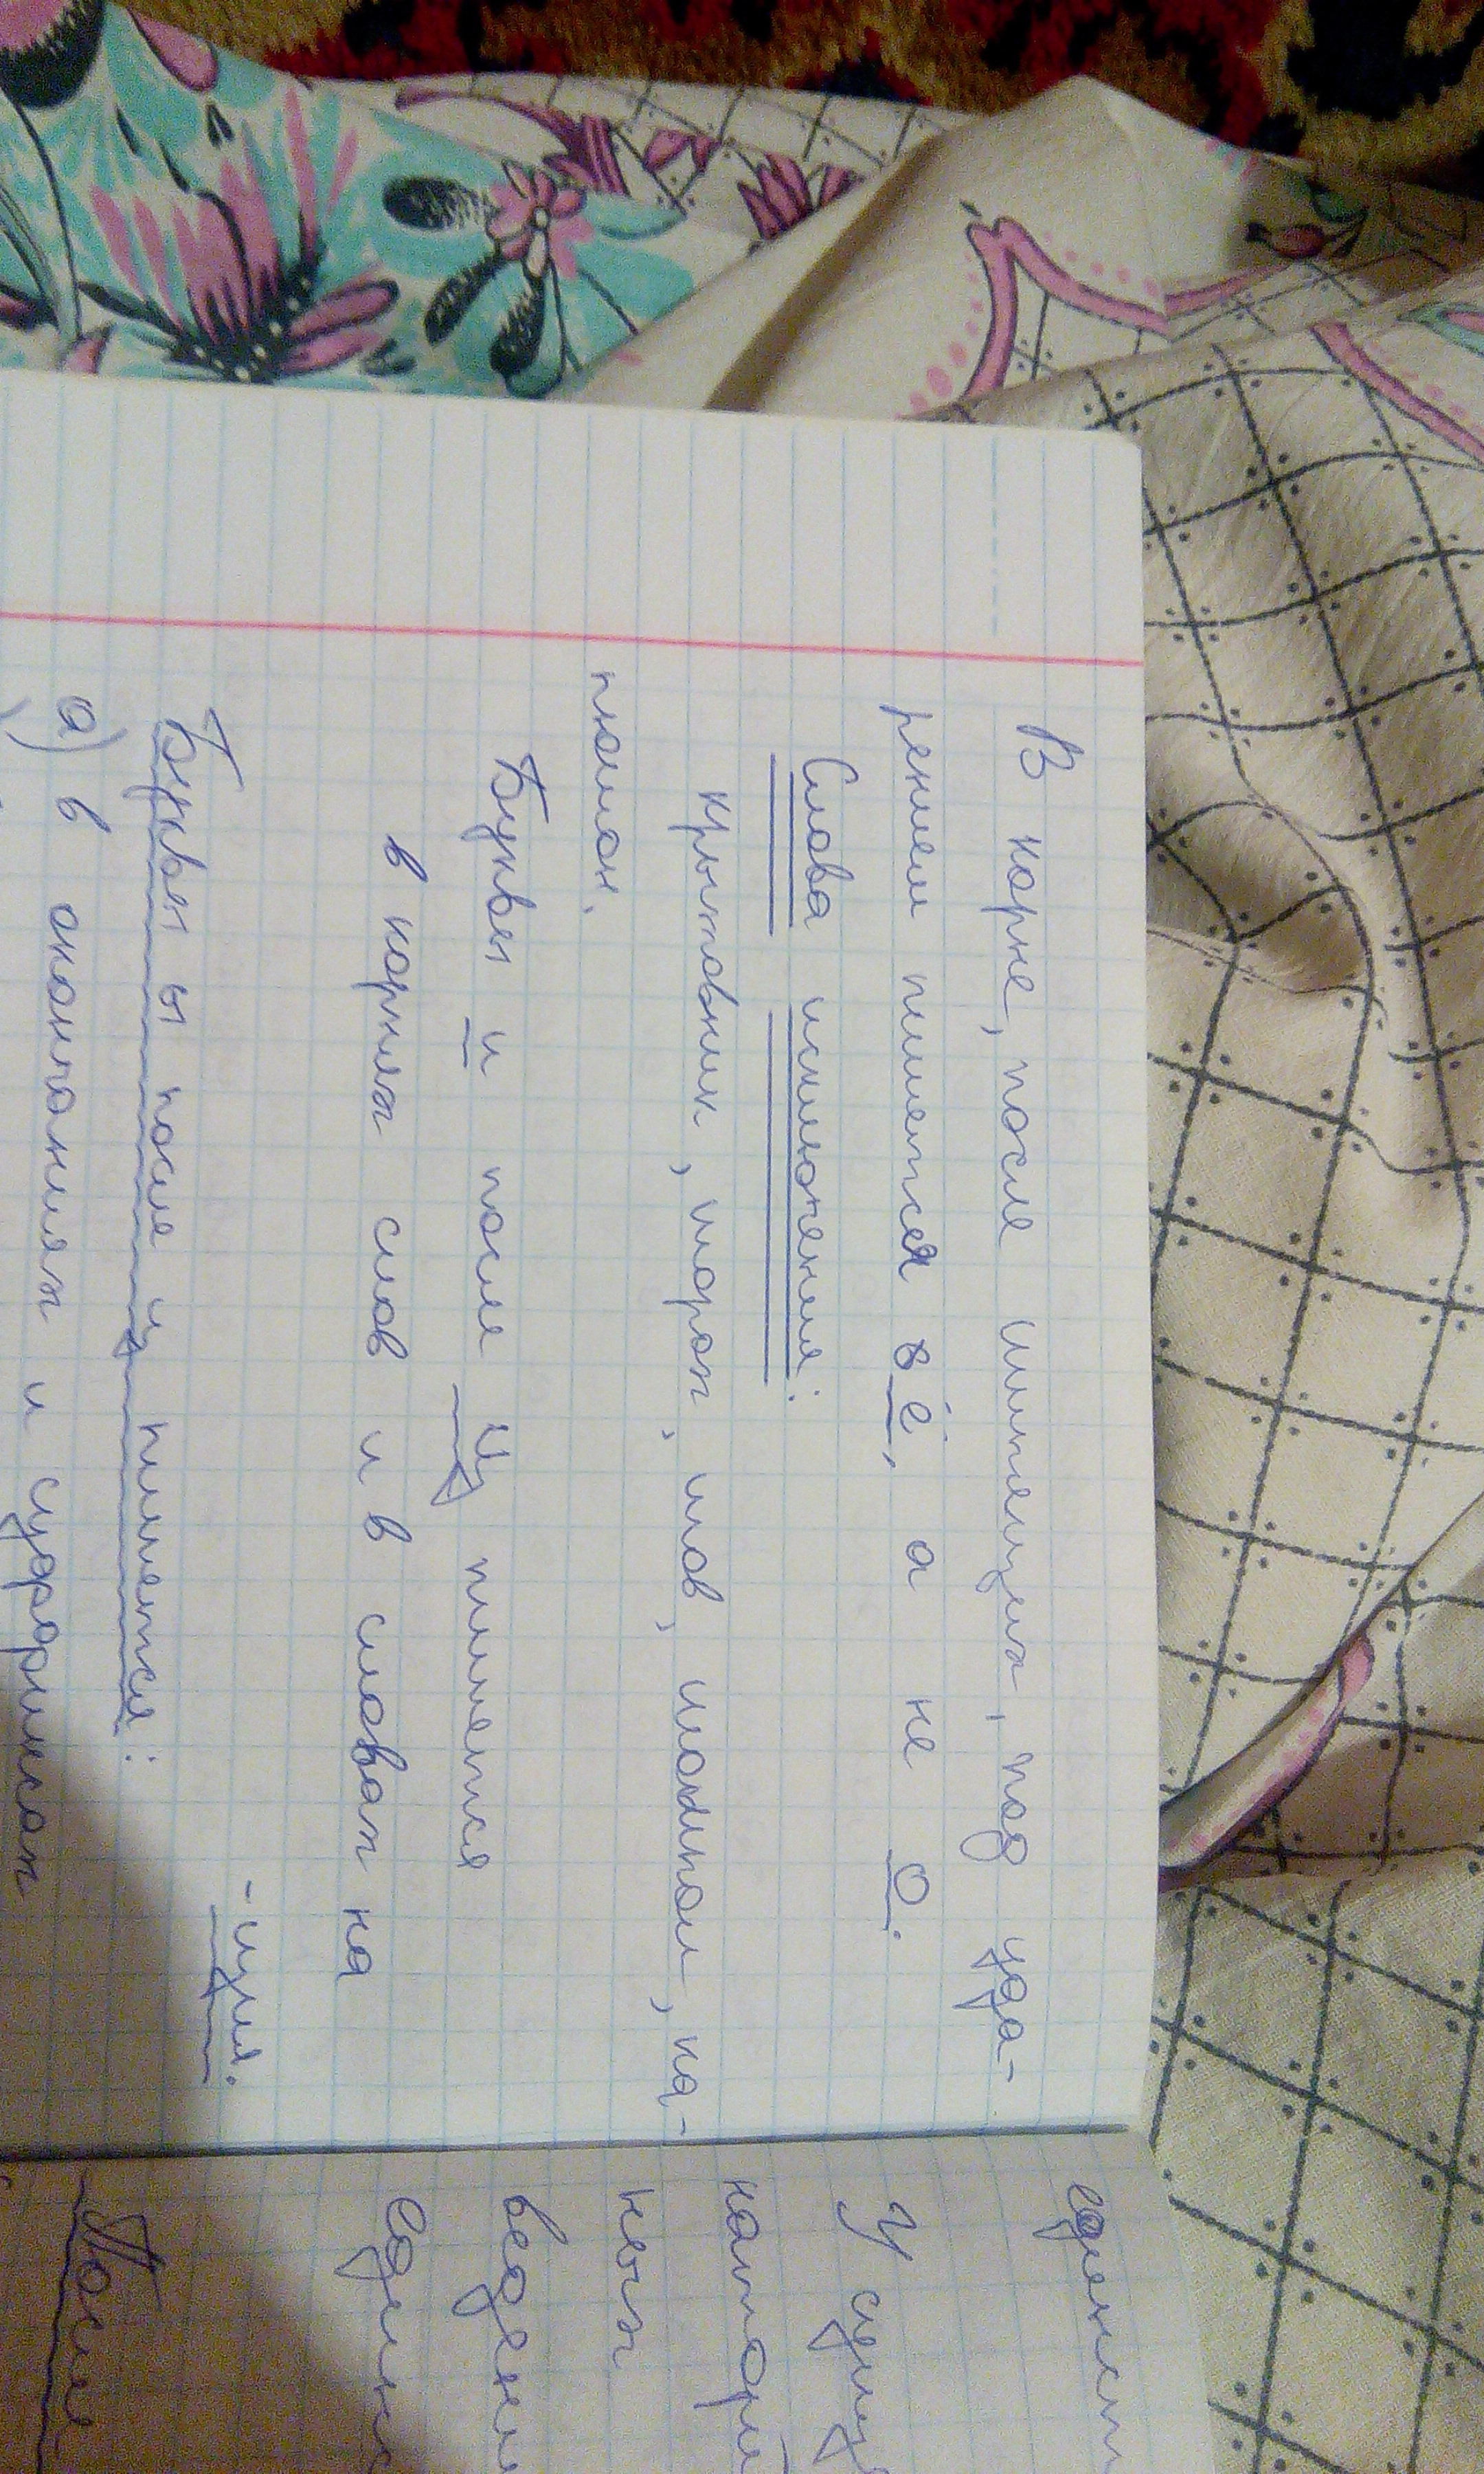 В корне, после шипящих, под уда-
рением пишется ё, а не о.
Слова исключения:
крыжовник, шорох, шов, шомпол, ка-
пюшон.
Буквы и после ц пишется
в корнях слов и в словах на
-ция.
Буквы ы после ц пишется:
а) в окончаниях и суффиксах
единст
У сущ
катори
ных
веден
един
После